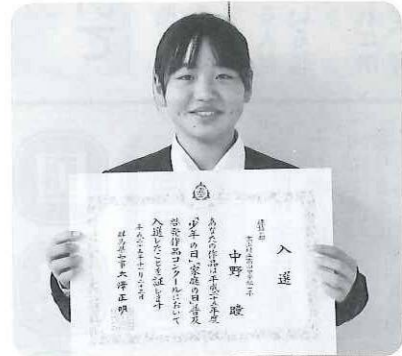 入選
中野 瞳
あなたの作品は平成二十五年度
「少年の日」「家庭の日」普及
啓発作品コンクールにおいて
入選したことを証します
群馬県知事 大澤正明